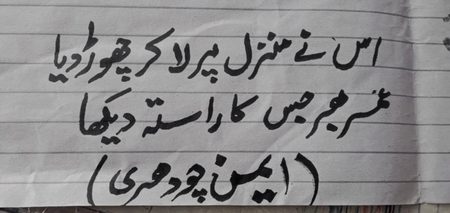 اس نے منزل پر لا کر چھوڑ دیا
عمر بھر جس کا راستہ دیکھا
(ایمن چودھری)